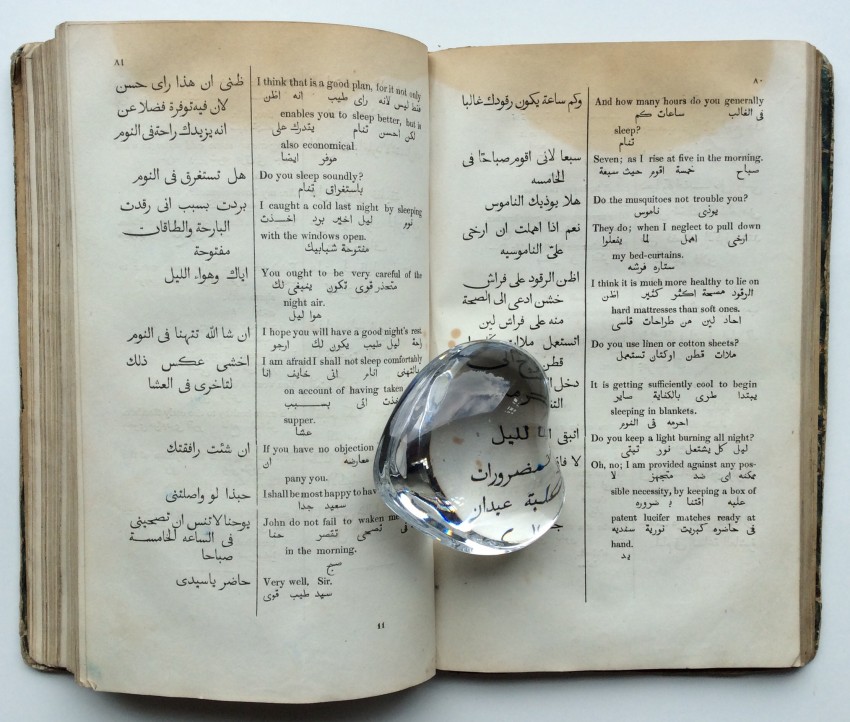 ٨٠
And how many hours do you generally
فى الغالب ساعات كم
sleep?
تنام
Seven; as I rise at five in the morning.
صباح خمسة اقوم حيث سبعة
Do the musquitoes not trouble you?
يوذى ناموس
They do; when I neglect to pull down
ارخى اهمل لما يفعلوا
my bed-curtains.
ستاره فرشه
I think it is much more healthy to lie on
الرقود اكثر كثير اظن
hard mattresses than soft ones.
احاد لين من طراحات قاسى
Do you use linen or cotton sheets?
ملات قطن اوكتان تستعمل
It is getting sufficiently cool to begin
يبتدا طرى بالكفاية صاير
sleeping in blankets.
احرمه فى النوم
Do you keep a light burning all night?
ليل كل يشتعل نور تبقى
Oh, no; I am provided against any pos-
ممكنه اى ضد متجهز لا
sible necessity, by keeping a box of
علبه اقتنا ب ضروره
patent lucifer matches ready at
فى حاضره كبريت نورية
hand.
يد
وكم ساعة يكون رقودك غالبا
سبعا لانى اقوم صباحًا فى
الخامسه
هلا يوذيك الناموس
نعم اذا اهملت ان ارخى
علىّ الناموسيه
اظن الرقود على فراش
خشن ادعى الى الصحة
منه على فراش لين
اتستعمل ملات
قطن
دخل
اتبقى لليل
لا
ضرورات
علبة عيدان
٨١
I think that is a good plan, for it not only
فقط ليس لانه راى طيب انه اظن
enables you to sleep better, but is
لكن احسن تنام يقدرك على
also economical.
موفر ايضا
Do you sleep soundly?
باستغراق تنام
I caught a cold last night by sleeping
نوم ليل اخير برد اخذت
with the windows open.
مفتوحة شبابيك
You ought to be very careful of the
متحذر قوى تكون ينبغى لك
night air.
هوا ليل
I hope you will have a good night's rest.
راحة ليل طيب يكون لك ارجو
I am afraid I shall not sleep comfortably
بالتهنى انام انى خايف انا
on account of having taken
اخذت انى بسبب
supper.
عشا
If you have no objection
معارضه ان
pany you.
I shall be most happy to hav
سعيد جدا
John do not fail to waken me
فى تصحى تقصر حنا
in the morning.
صبح
Very well, Sir.
سيد طيب قوى
ظنى ان هذا راى حسن
لان فيه توفرة فضلا عن
انه يزيدك راحة فى النوم
هل تستغرق فى النوم
بردت بسبب انى رقدت
البارحة والطاقات
مفتوحة
اياك وهواء الليل
ان شا الله تتهنا فى النوم
اخشى عكس ذلك
لتاخرى فى العشا
ان شئت رافقتك
حبذا لو واصلتنى
يوحنا لا تنس ان تصحينى
فى الساعه الخامسة
صباحا
حاضر ياسيدى